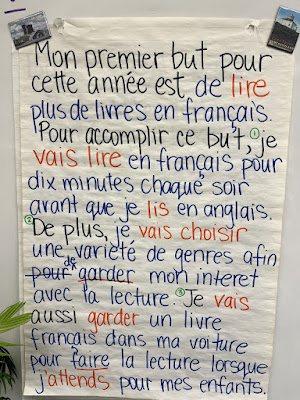 Mon premier but pour
cette année est de lire
plus de livres en français.
Pour accomplir ce but, ① je
vais lire en français pour
dix minutes chaque soir
avant que je lis en anglais.
② De plus, je vais choisir
une variété de genres afin
pour de garder mon interet
avec la lecture. ③ Je vais
aussi garder un livre
français dans ma voiture
pour faire la lecture lorsque
j'attends pour mes enfants.